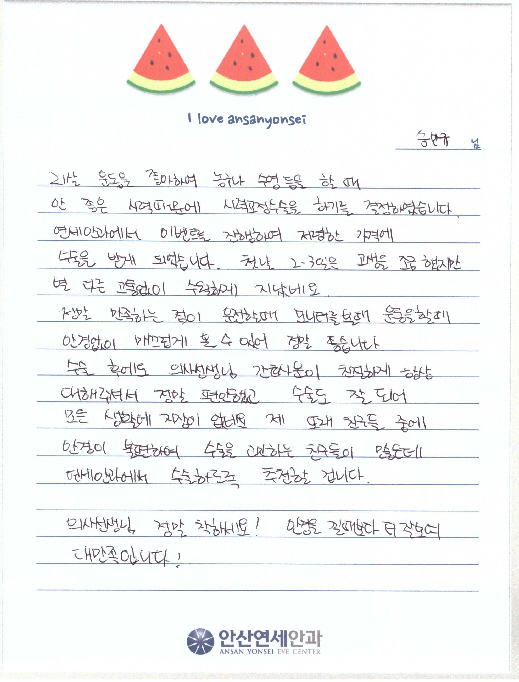 I love ansanyonsei
님
21살 운동을 좋아하여 농구나 수영 등을 할 때
안 좋은 시력때문에 시력교정수술을 하기를 결정하였습니다.
연세안과에서 이벤트를 진행하여 저렴한 가격에
수술을 받게 되었습니다. 첫날 2-3일은 고생을 조금 했지만
별 다른 고통없이 수월하게 지났네요
정말 만족하는 점이 운전할때 모니터를 볼때 운동을할때
안경없이 매끄럽게 볼 수 있어 정말 좋습니다
수술 후에도 의사선생님 간호사분이 친절하게 항상
대해주셔서 정말 편안했고 수술도 잘 되어
모든 생활에 지장이 없네요 제 또래 친구들 중에
안경이 불편하여 수술을 고민하는 친구들이 많은데
연세안과에서 수술하도록 추천할 겁니다.
의사선생님 정말 착하세요! 안경을 낄때보다 더 잘보여
대만족입니다!
안산연세안과
ANSAN YONSEI EYE CENTER